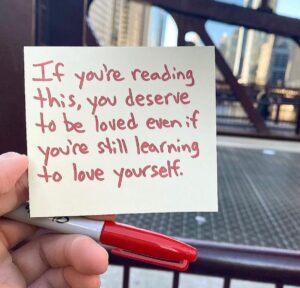 If you're reading
this, you deserve
to be loved even if
you're still learning
to love yourself.